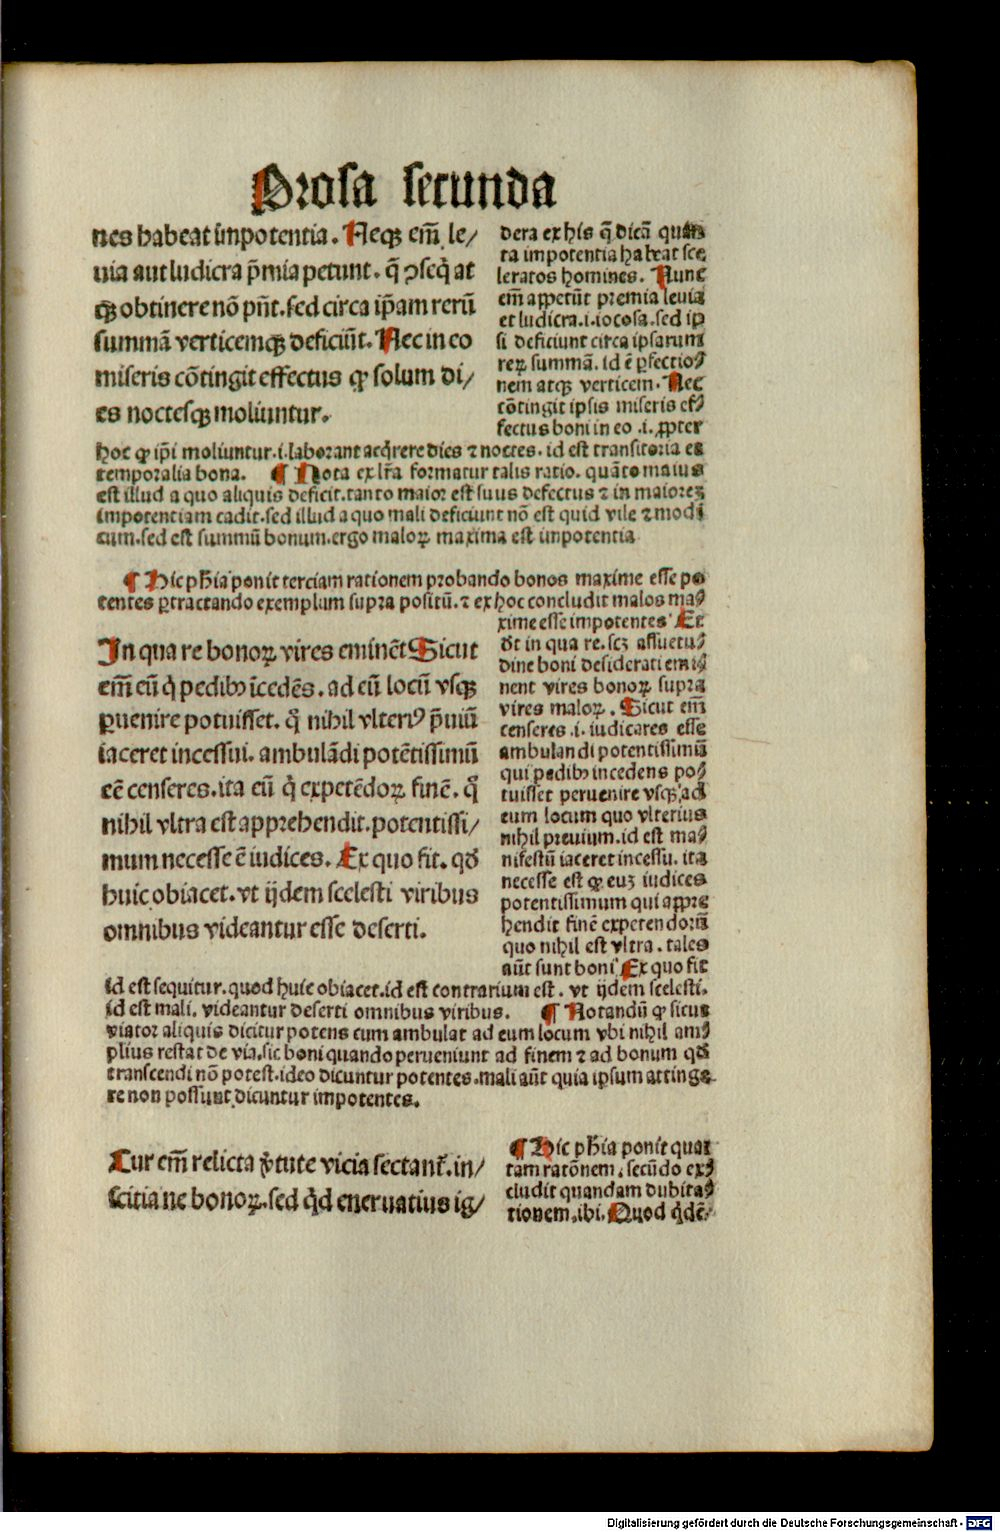 Prosa secunda
nes habeat impotentia. Neqꝫ em̄ le/
uia aut ludicra p̄mia petunt. q̄ ꝯseq̇ at
qꝫ obtinere nō pn̄t. sed circa ip̄am rerū
summā verticemqꝫ deficiūt. Nec in eo
miseris cōtingit effectus ꝙ solum di/
es noctesqꝫ moliuntur.
dera ex his q̄ dicā quan
ta impotentia habeat sce
leratos homines. Nunc
em̄ appetūt premia leuia
et ludicra .i. iocosa. sed ip
si deficiunt circa ipsarum
reꝝ summā. id ē ꝑfectio⸗
nem atqꝫ verticem. Nec
cōtingit ipsis miseris ef⸗
fectus boni in eo .i. ꝓpter
hoc ꝙ ip̄i moliuntur .i. laborant acq̇rere dies ⁊ noctes. id est transitoria et
temporalia bona. ¶ Nota ex lr̄a formatur talis ratio. quāto maius
est illud a quo aliquis deficit. tanto maior est suus defectus ⁊ in maioreꝫ
impotentiam cadit. sed illud a quo mali deficiunt nō est quid vile ⁊ modi
cum. sed est summū bonum. ergo maloꝝ maxima est impotentia
¶ Hic ph̄ia ponit terciam rationem probando bonos maxime esse po
tentes ꝑtractando exemplum supra positū. ⁊ ex hoc concludit malos ma⸗
xime esse impotentes Et
In qua re bonoꝝ vires eminēt Sicut
em̄ eū q̇ pedibꝫ īcedēs. ad eū locū vsqꝫ
ꝑuenire potuisset. q̊ nihil vlteriꝰ p̄uiū
iaceret incessui. ambulādi potētissimū
eē censeres. ita eū q̇ expetēdoꝝ finē. q̊
nihil vltra est apprehendit. potentissi/
mum necesse ē iudices. Ex quo fit. qđ
huic obiacet. vt ijdem scelesti viribus
omnibus videantur esse deserti.
đt in qua re. scꝫ assuetu⸗
dine boni desiderati emi⸗
nent vires bonoꝝ supra
vires maloꝝ. Sicut em̄
censeres .i. iudicares esse
ambulandi potentissimū
qui pedibꝫ incedens po⸗
tuisset peruenire vsqꝫ ad
eum locum quo vlterius
nihil preuium. id est ma⸗
nifestū iaceret incessu. ita
necesse est ꝙ euꝫ iudices
potentissimum qui appre
hendit finē expetendorū
quo nihil est vltra. tales
aūt sunt boni Ex quo fit
id est sequitur. quod huic obiacet. id est contrarium est. vt ijdem scelesti.
id est mali. videantur deserti omnibus viribus. ¶ Notandū ꝙ sicut
viator aliquis dicitur potens cum ambulat ad eum locum vbi nihil am⸗
plius restat de via. sic boni quando perueniunt ad finem ⁊ ad bonum qđ
transcendi nō potest. ideo dicuntur potentes. mali aūt quia ipsum attinge
re non possunt dicuntur impotentes.
Cur em̄ relicta v̓tute vicia sectant᷑. in/
scitia ne bonoꝝ. sed q̇d eneruatius ig/
¶ Hic ph̄ia ponit quar
tam ratōnem. secūdo ex⸗
cludit quandam dubita⸗
tionem. ibi. Quod q̇dē.
Digitalisierung gefördert durch die Deutsche Forschungsgemeinschaft - DFG